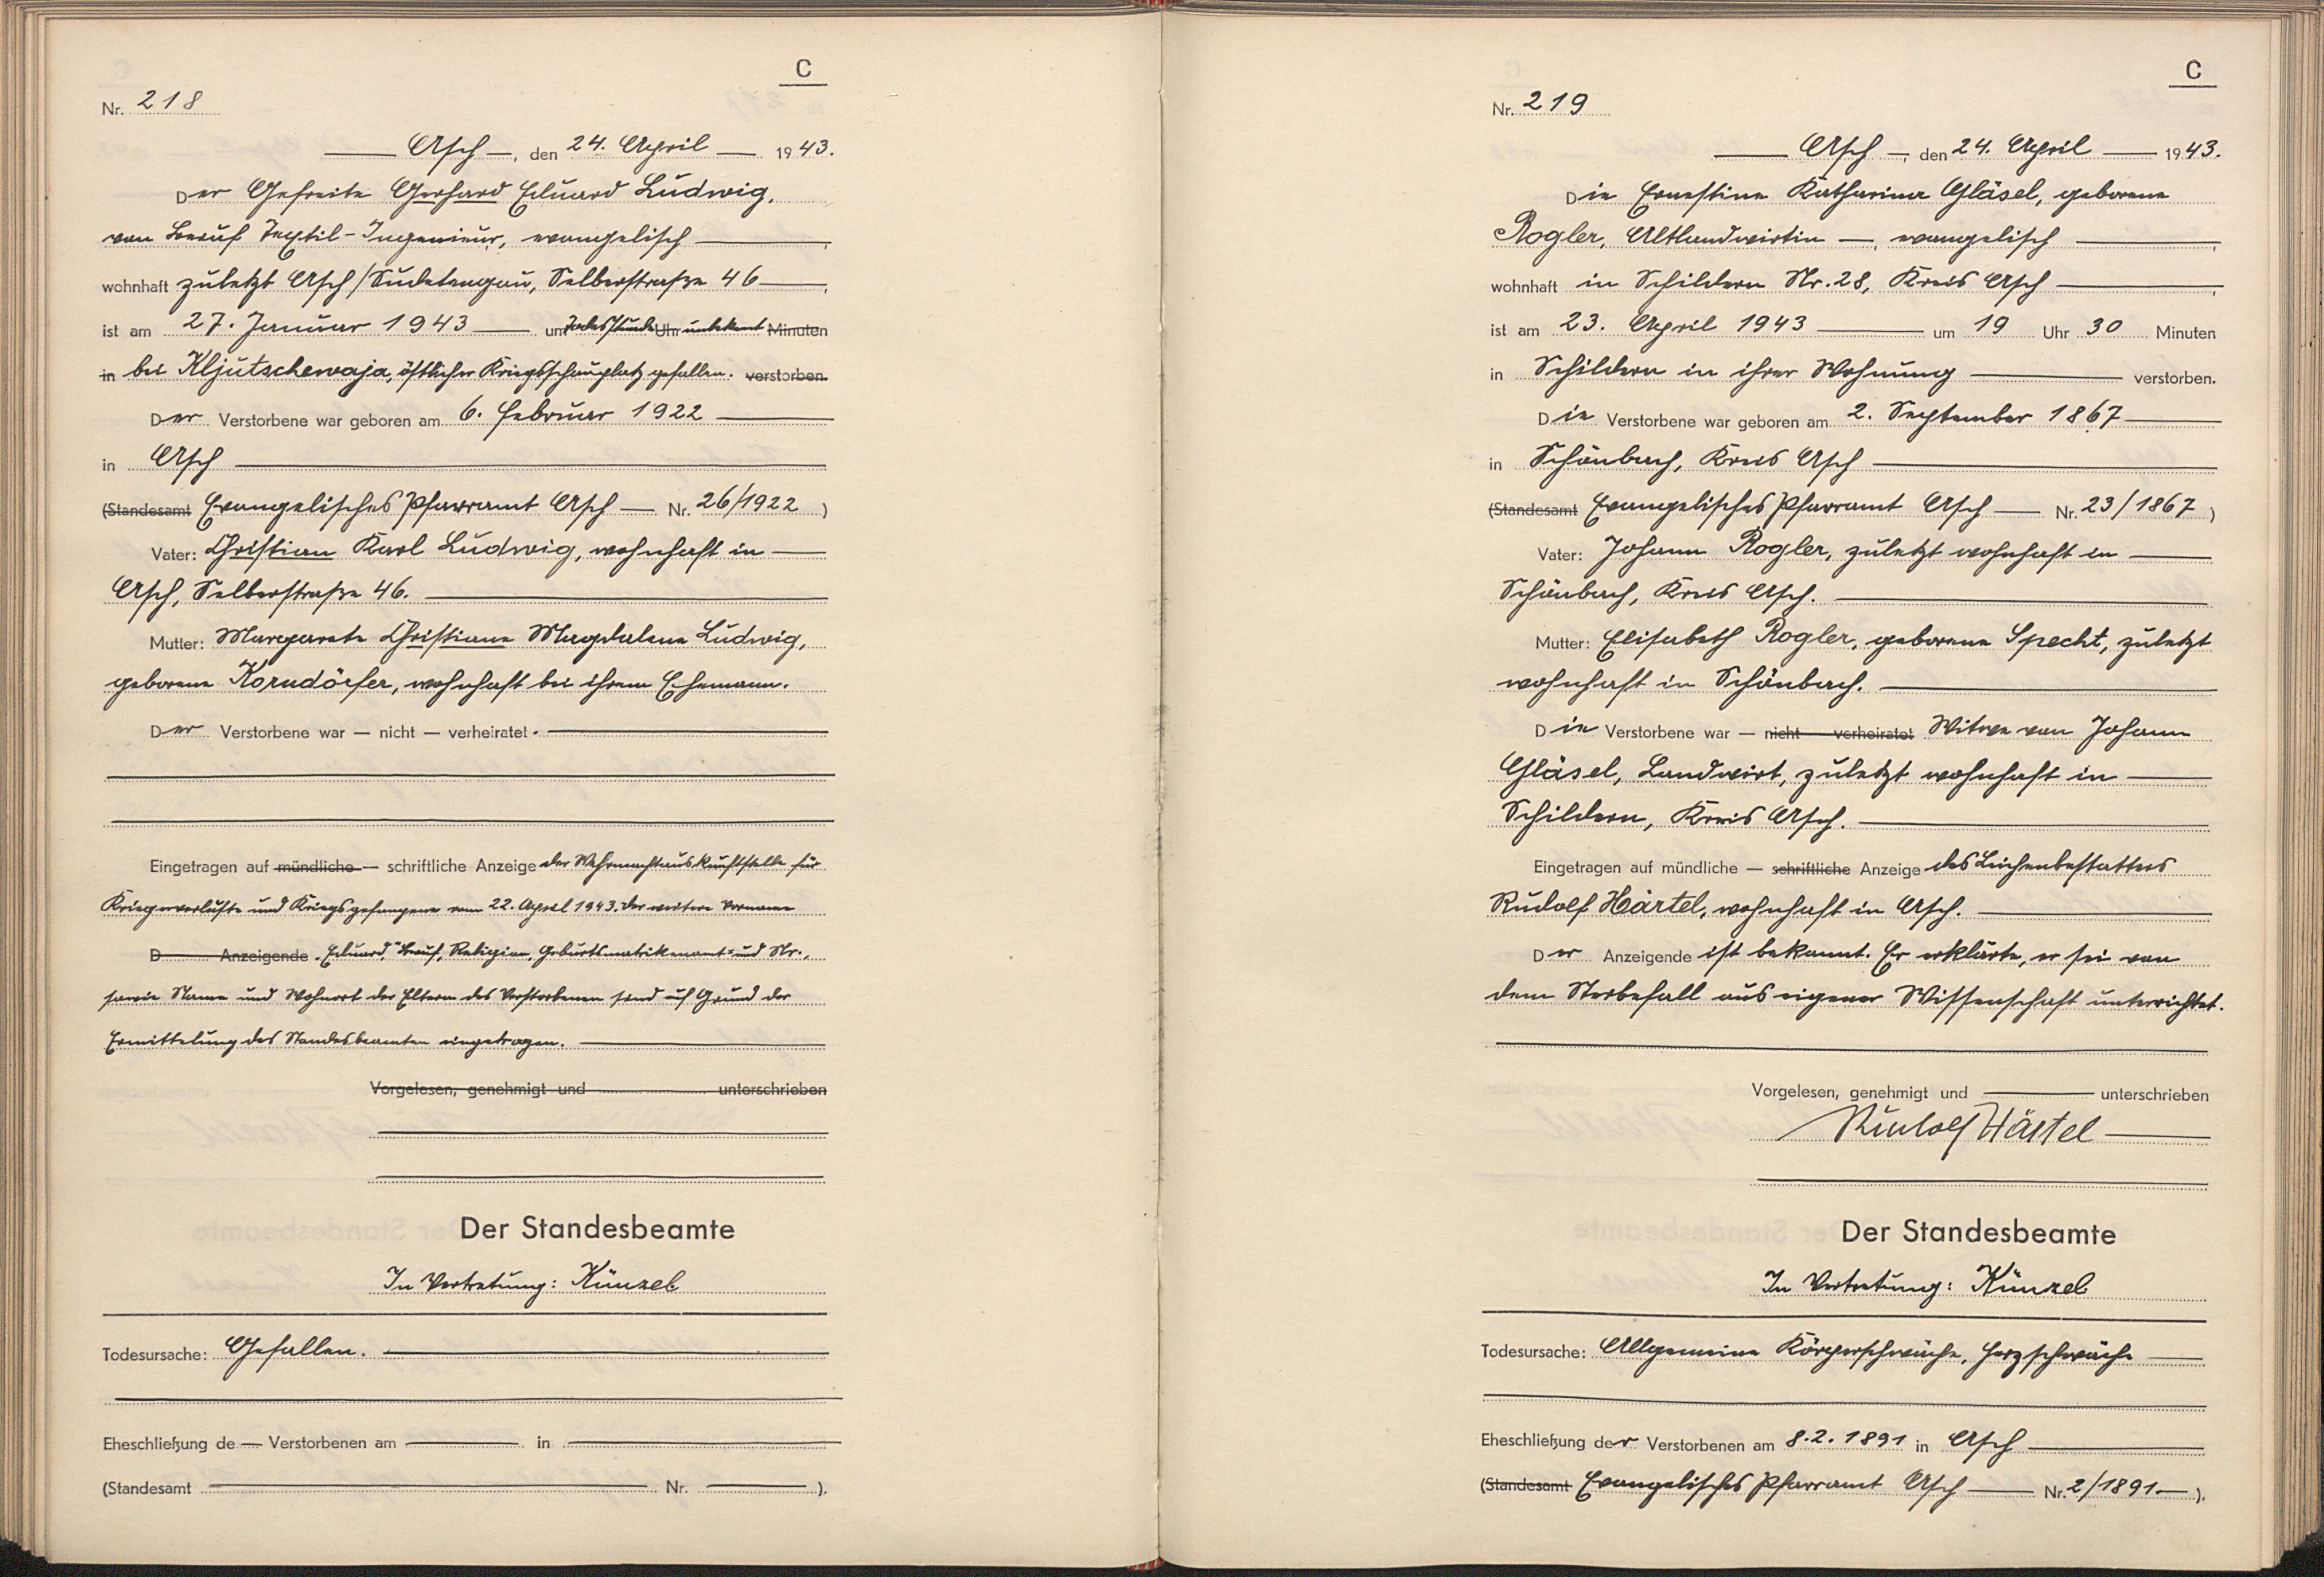 C
Nr. 218
Asch, den 24. April 1943.
Der Gefreite Gerhard Eduard Ludwig,
von Beruf Textil-Ingenieur, evangelisch,
wohnhaft zuletzt Asch/Sudetengau, Selberstraße 46,
ist am 27. Januar 1943 um Todesstunde Uhr unbekannt Minuten
in bei Kljutschewaja, östlicher Kriegsschauplatz gefallen. verstorben.
Der Verstorbene war geboren am 6. Februar 1922
in Asch
(Standesamt Evangelisches Pfarramt Asch Nr. 26/1922)
Vater: Christian Karl Ludwig, wohnhaft in
Asch, Selberstraße 46.
Mutter: Margarete Christiane Magdalena Ludwig,
geborene Korndörfer, wohnhaft bei ihrem Ehemann.
Der Verstorbene war — nicht — verheiratet.
Eingetragen auf mündliche — schriftliche Anzeige der Wehrmachtauskunftstelle für
Kriegerverluste und Kriegsgefangene vom 22. April 1943. Der weitere Vorname
D Anzeigende „Eduard", Beruf, Religion, Geburtsmatrikenamt- und Nr.,
sowie Name und Wohnort der Eltern des Verstorbenen sind auf Grund der
Ermittelung des Standesbeamten eingetragen.
Vorgelesen, genehmigt und unterschrieben
Der Standesbeamte
In Vertretung: Künzel
Todesursache: Gefallen.
Eheschließung de — Verstorbenen am in
(Standesamt Nr. ).
C
Nr. 219
Asch, den 24. April 1943.
Die Ernestine Katharina Gläsel, geborene
Rogler, Altlandwirtin —, evangelisch,
wohnhaft in Schildern Nr. 28, Kreis Asch,
ist am 23. April 1943 um 19 Uhr 30 Minuten
in Schildern in ihrer Wohnung verstorben.
Die Verstorbene war geboren am 2. September 1867
in Schönbach, Kreis Asch
(Standesamt Evangelisches Pfarramt Asch — Nr. 23/1867)
Vater: Johann Rogler, zuletzt wohnhaft in
Schönbach, Kreis Asch.
Mutter: Elisabeth Rogler, geborene Specht, zuletzt
wohnhaft in Schönbach.
Die Verstorbene war — nicht verheiratet Witwe von Johann
Gläsel, Landwirt, zuletzt wohnhaft in
Schildern, Kreis Asch.
Eingetragen auf mündliche — schriftliche Anzeige des Leichenbestatters
Rudolf Härtel, wohnhaft in Asch.
Der Anzeigende ist bekannt. Er erklärte, er sei von
dem Sterbefall aus eigener Wissenschaft unterrichtet.
Vorgelesen, genehmigt und unterschrieben
Rudolf Härtel
Der Standesbeamte
In Vertretung: Künzel
Todesursache: Allgemeine Körperschwäche, Herzschwäche
Eheschließung der Verstorbenen am 8.2.1891 in Asch
(Standesamt Evangelisches Pfarramt Asch — Nr. 2/1891.—).